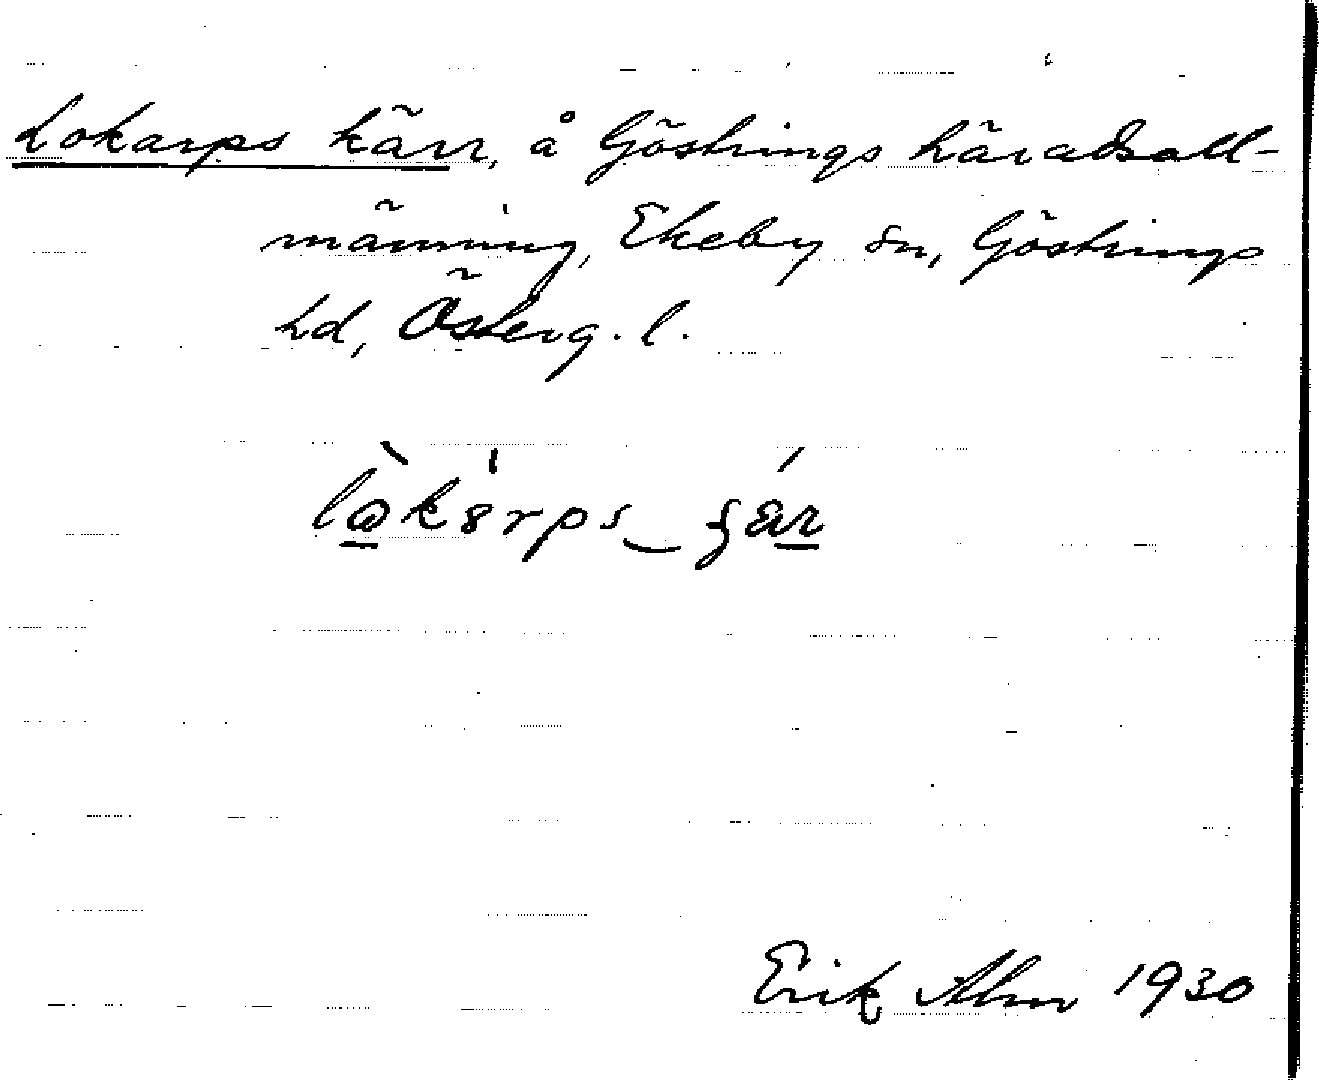 Lokarps kärr, å Göstrings häradsall-
männing, Ekeby sn, Göstrings
hd, Österg. l.
Erik Alm 1930